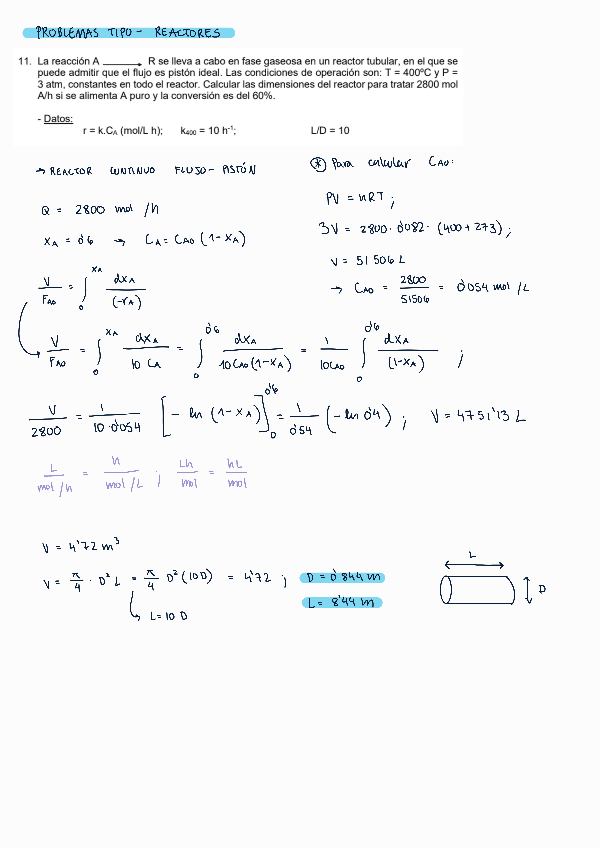 PROBLEMAS TIPO - REACTORES
11. La reacción A → R se lleva a cabo en fase gaseosa en un reactor tubular, en el que se
puede admitir que el flujo es pistón ideal. Las condiciones de operación son: T = 400ºC y P =
3 atm, constantes en todo el reactor. Calcular las dimensiones del reactor para tratar 2800 mol
A/h si se alimenta A puro y la conversión es del 60%.
- Datos:
r = k.CA (mol/L h); k400 = 10 h-1; L/D = 10
→ REACTOR CONTINUO FLUJO-PISTÓN
Q = 2800 mol /h
XA = 0'6 → CA = CAO (1-XA)
V/FAO = ∫0^XA dXA/(-rA)
* Para calcular CAO:
PV = nRT ;
3V = 2800 · 0'082 · (400 + 273) ;
V = 51506 L
→ CAO = 2800/51506 = 0'054 mol /L
V/FAO = ∫0^XA dXA/10 CA = ∫0^0'6 dXA/10CAO(1-XA) = 1/10CAO ∫0^0'6 dXA/(1-XA) ;
V/2800 = 1/10·0'054 [- ln (1-XA)]0^0'6 = 1/0'54 (- ln 0'4) ; V = 4751'13 L
L/mol/h = h/mol/L ; Lh/mol = hL/mol
V = 4'72 m3
V = π/4 · D2 L = π/4 D2 (10D) = 4'72 ; D = 0'844 m
L = 8'44 m
L = 10 D
L
D